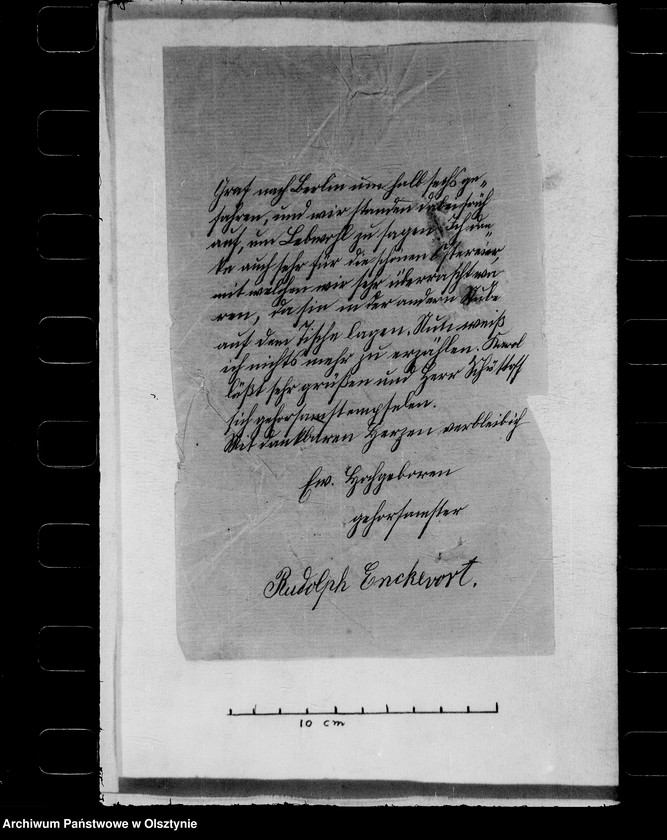 Graf nach Berlin um halb sechs ge-
fahren, und wir standen dabei früh
auf, um Lebwohl zu sagen. Ich dan-
ke auch sehr für die schönen Ostereier,
mit welchen wir sehr überrascht wa
ren, da sie in der andern Stube
auf dem Tische lagen. Nun weiß
ich nichts mehr zu erzählen. Karol
läßt sehr grüßen und Herr
sich gehorsamst empfelen.
Mit dankbaren Herzen verbleib ich
Ew. Hochgeboren
gehorsamster
Rudolph Enckevort.
10 cm
Archiwum Państwowe w Olsztynie